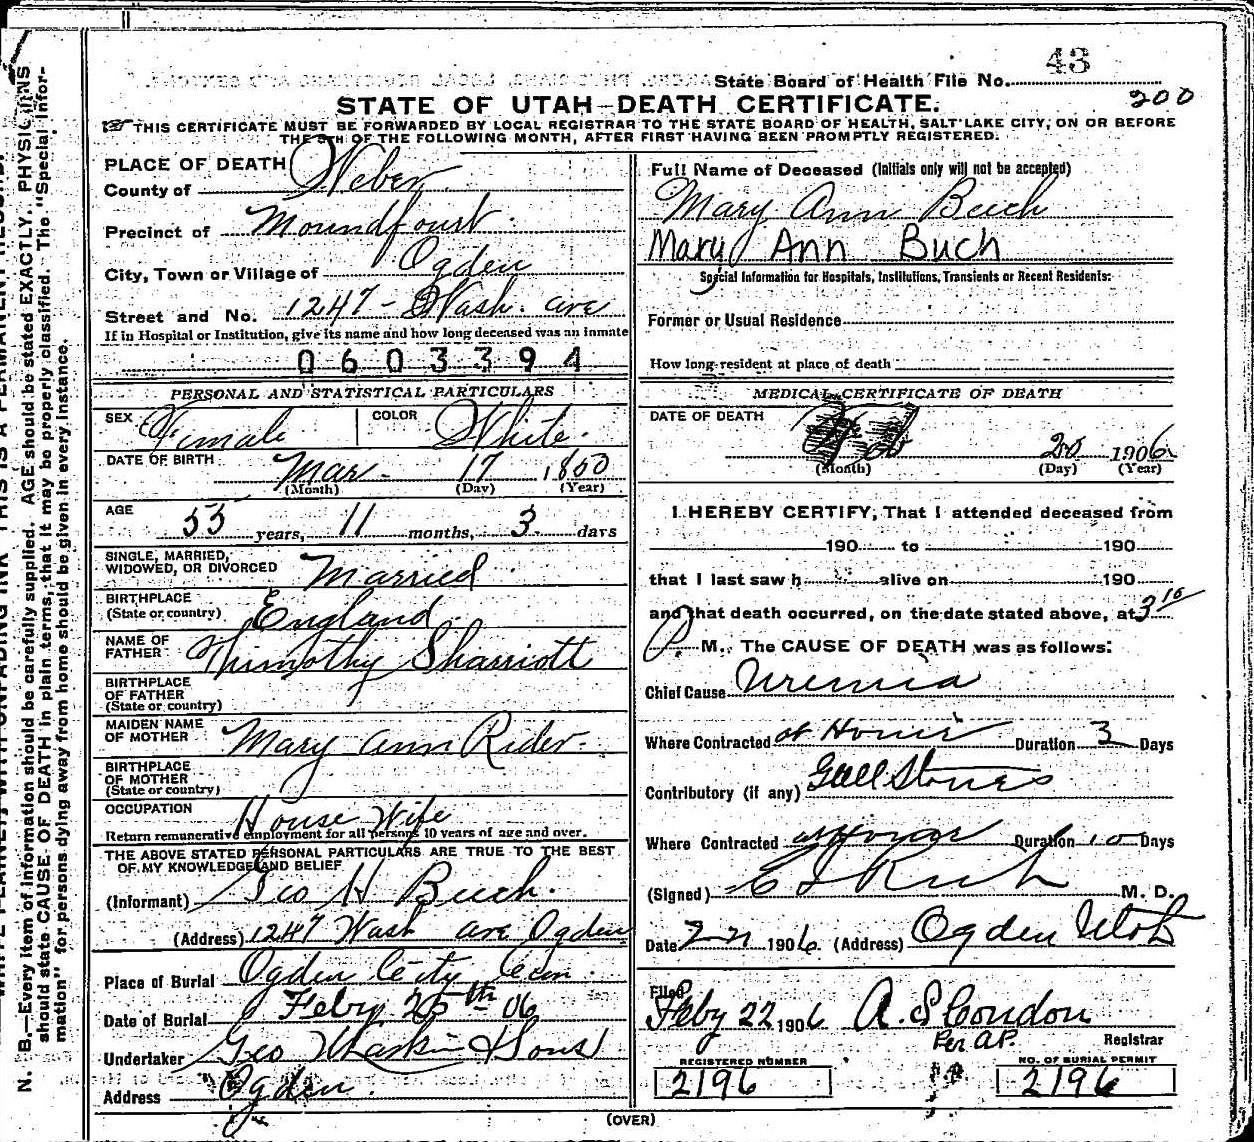 State Board of Health File No. 43
200
STATE OF UTAH—DEATH CERTIFICATE.
THIS CERTIFICATE MUST BE FORWARDED BY LOCAL REGISTRAR TO THE STATE BOARD OF HEALTH, SALT LAKE CITY, ON OR BEFORE
THE 5TH OF THE FOLLOWING MONTH, AFTER FIRST HAVING BEEN PROMPTLY REGISTERED.
PLACE OF DEATH
County of Weber
Precinct of Moundfourt
City, Town or Village of Ogden
Street and No. 1247 - Wash. ave
If in Hospital or Institution, give its name and how long deceased was an inmate
0603394
PERSONAL AND STATISTICAL PARTICULARS
SEX Female COLOR White
DATE OF BIRTH Mar - 17 1850
(Month) (Day) (Year)
AGE 55 years, 11 months, 3 days
SINGLE, MARRIED,
WIDOWED, OR DIVORCED Married
BIRTHPLACE
(State or country) England
NAME OF
FATHER Thimothy Sharriott
BIRTHPLACE
OF FATHER
(State or country)
MAIDEN NAME
OF MOTHER Mary Ann Rider
BIRTHPLACE
OF MOTHER
(State or country)
OCCUPATION House Wife
Return remunerative employment for all persons 10 years of age and over.
THE ABOVE STATED PERSONAL PARTICULARS ARE TRUE TO THE BEST
OF MY KNOWLEDGE AND BELIEF
(Informant) Geo H Buch.
(Address) 1247 Wash ave Ogden
Place of Burial Ogden City Cem.
Date of Burial Febry 25th 06
Undertaker Geo & Sons
Address Ogden.
Full Name of Deceased (Initials only will not be accepted)
Mary Ann Buch
Mary Ann Buch
Special Information for Hospitals, Institutions, Transients or Recent Residents:
Former or Usual Residence
How long resident at place of death
MEDICAL CERTIFICATE OF DEATH
DATE OF DEATH Feb 20 1906
(Month) (Day) (Year)
I HEREBY CERTIFY, That I attended deceased from
190 to 190
that I last saw h alive on 190
and that death occurred, on the date stated above, at 3 10
P M. The CAUSE OF DEATH was as follows:
Chief Cause Uremia
Where Contracted at Home Duration 3 Days
Contributory (if any) Gall Stones
Where Contracted at Home Duration 10 Days
(Signed) E I Rich M. D.
Date 2-21 1906. (Address) Ogden Utah
Filed
Feby 22 1906 A. S Condon
Per A.P. Registrar
REGISTERED NUMBER
2196
NO. OF BURIAL PERMIT
2196
(OVER)
N. B.—Every item of information should be carefully supplied. AGE should be stated EXACTLY. PHYSICIANS
should state CAUSE OF DEATH in plain terms, that it may be properly classified. The "Special Infor-
mation" for persons dying away from home should be given in every instance.